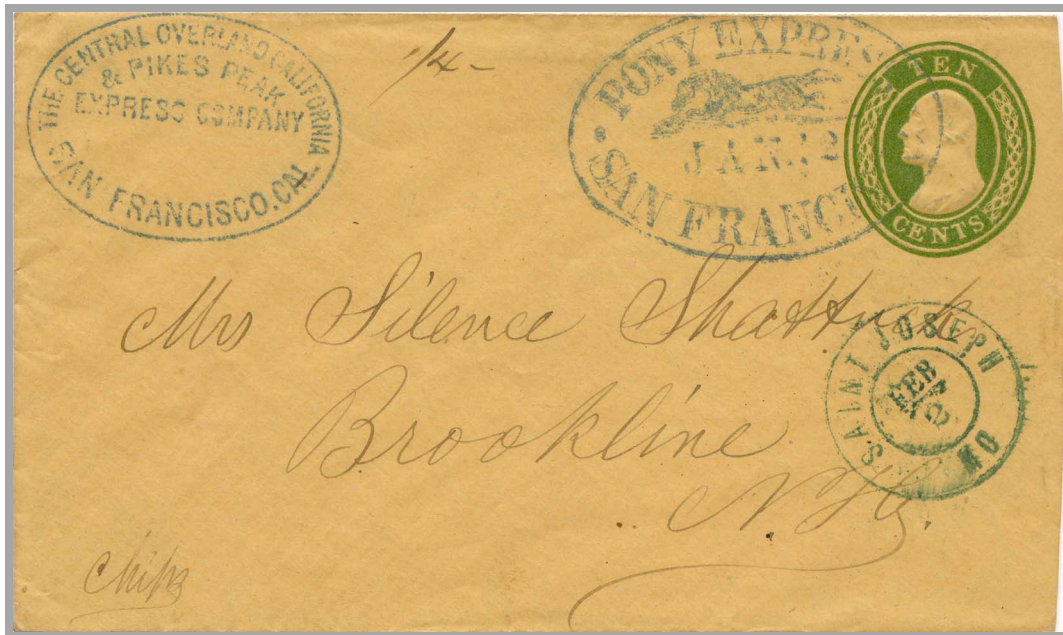 THE CENTRAL OVERLAND CALIFORNIA
& PIKES PEAK
EXPRESS COMPANY
SAN FRANCISCO, CAL
1/4-
PONY EXPRESS
JAN. 12
SAN FRANCI
TEN
CENTS
Mrs Silence Shattuck
Brookline
N. H.
SAINT JOSEPH
FEB
2
MO